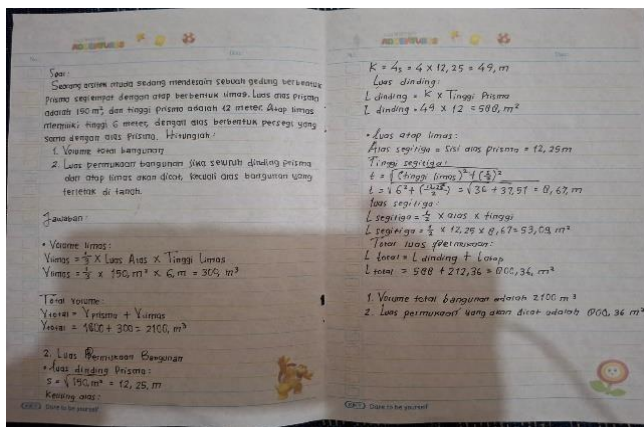 Soal:
Seorang arsitek muda sedang mendesain sebuah gedung berbentuk
Prisma segiempat dengan atap berbentuk limas. Luas alas prisma
adalah 150 m², dan tinggi prisma adalah 12 meter. Atap limas
memiliki tinggi 6 meter, dengan alas berbentuk persegi yang
sama dengan alas prisma. Hitunglah:
1. Volume total bangunan
2. Luas permukaan bangunan jika seluruh dinding prisma
dan atap limas akan dicat, kecuali alas bangunan yang
terletak di tanah.
Jawaban:
• Volume limas:
Vlimas = 1/3 × Luas Alas × Tinggi Limas
Vlimas = 1/3 × 150, m² × 6, m = 300, m³
Total volume:
Vtotal = Vprisma + Vlimas
Vtotal = 1800 + 300 = 2100, m³
2. Luas Permukaan Bangunan
• Luas dinding Prisma:
s = √150, m² = 12, 25, m
Keliling alas:
Dare to be yourself
K = 4s = 4 × 12, 25 = 49, m
Luas dinding:
L dinding = K × Tinggi Prisma
L dinding = 49 × 12 = 588, m²
• Luas atap limas:
Alas segitiga = sisi alas prisma = 12, 25m
Tinggi segitiga:
t = √(tinggi limas)² + (s/2)²
t = √6² + (12,25/2)² = √36 + 37,51 = 8, 67, m
luas segitiga:
L segitiga = 1/2 × alas × tinggi
L segitiga = 1/2 × 12, 25 × 8, 67 = 53, 09 m²
Total luas permukaan:
L total = L dinding + Latap
L total = 588 + 212, 36 = 800, 36, m²
1. Volume total bangunan adalah 2100 m³
2. Luas permukaan yang akan dicat adalah 800, 36 m²
Dare to be yourself